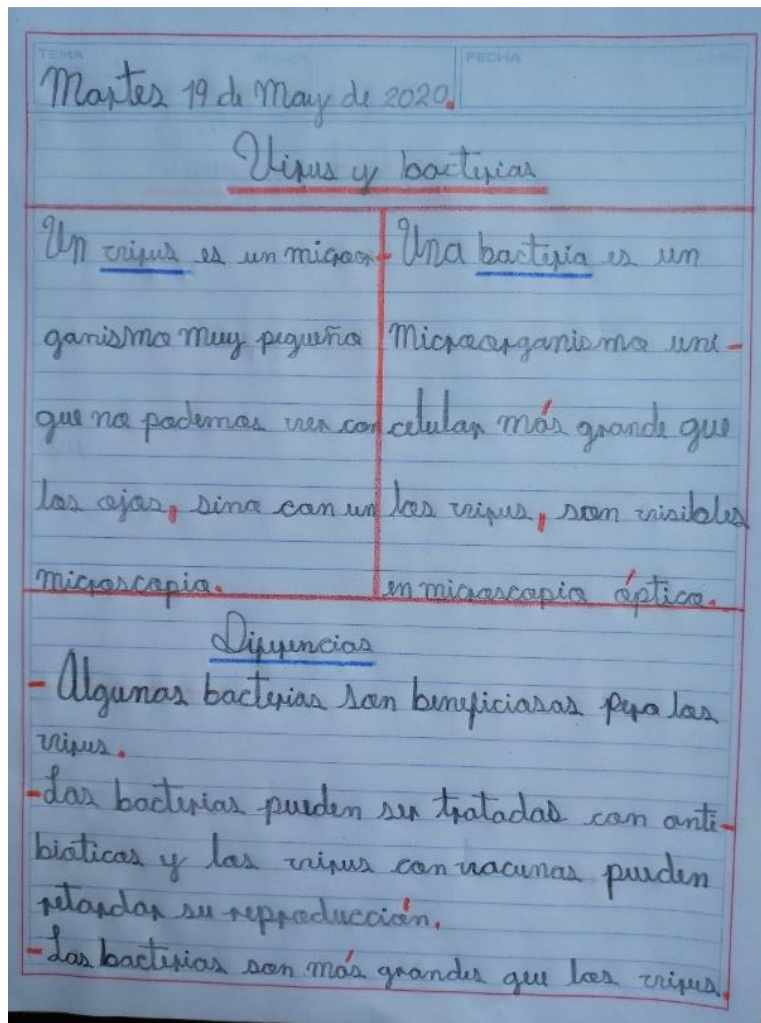 TEMA
FECHA
Martes 19 de May de 2020.
Virus y bacterias
Un virus es un microor-
ganismo muy pequeño
que no podemos ver con
los ojos, sino con un
microscopio.
Una bacteria es un
microorganismo uni-
celular más grande que
los virus, son visibles
en microscopio óptico.
Diferencias
- Algunas bacterias son beneficiosas pero los
virus.
- Las bacterias pueden ser tratadas con anti-
bioticos y los virus con vacunas pueden
retardar su reproducción.
- Las bacterias son más grandes que los virus.